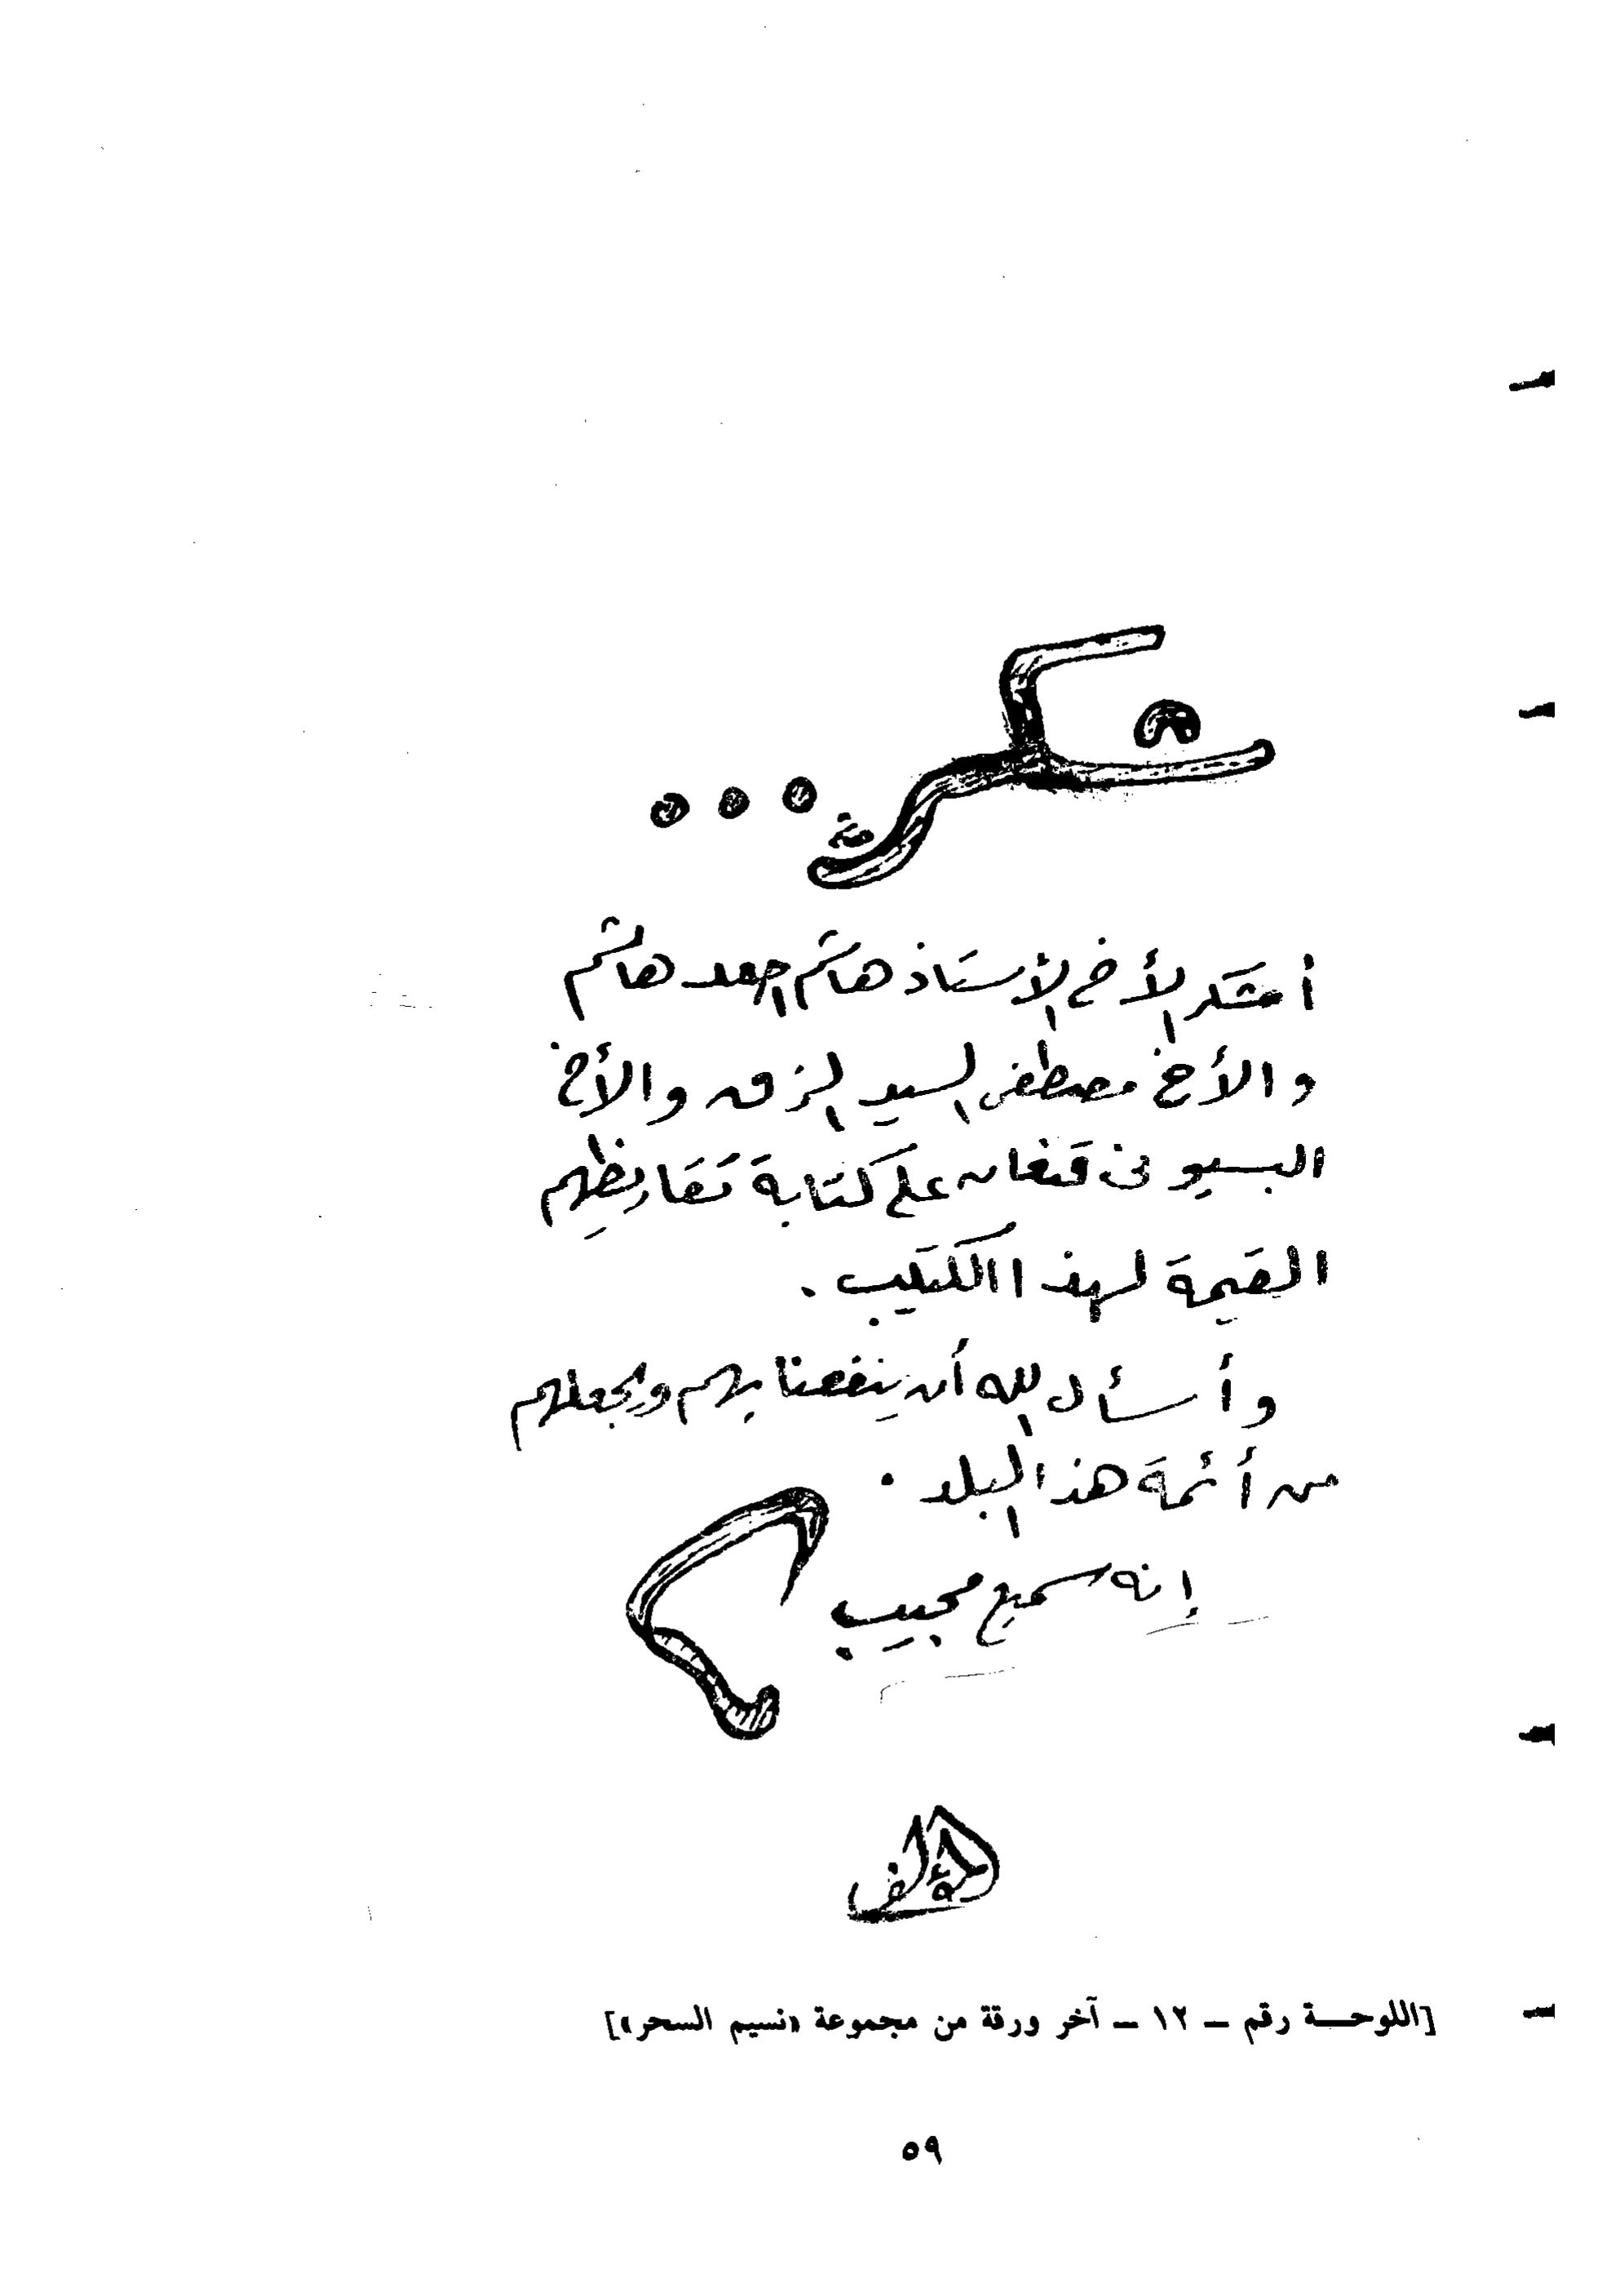 شكر ...
أشكر الأخ الأستاذ هاشم احمد هاشم
والأخ مصطفى السيد الزق والأخ
البسيونى على كتابة تقاريظهم
القيمة لهذا الكتيب .
وأسأل الله أن ينفعنا بهم ويجعلهم
من أئمة هذا البلد .
إنه سميع مجيب
المؤلف
[اللوحة رقم – ١٢ – آخر ورقة من مجموعة «نسيم السحر»]
٥٩